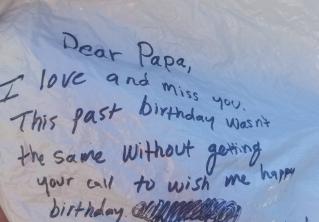 Dear Papa,
I love and miss you.
This past birthday wasnt
the same without getting
your call to wish me happy
birthday.